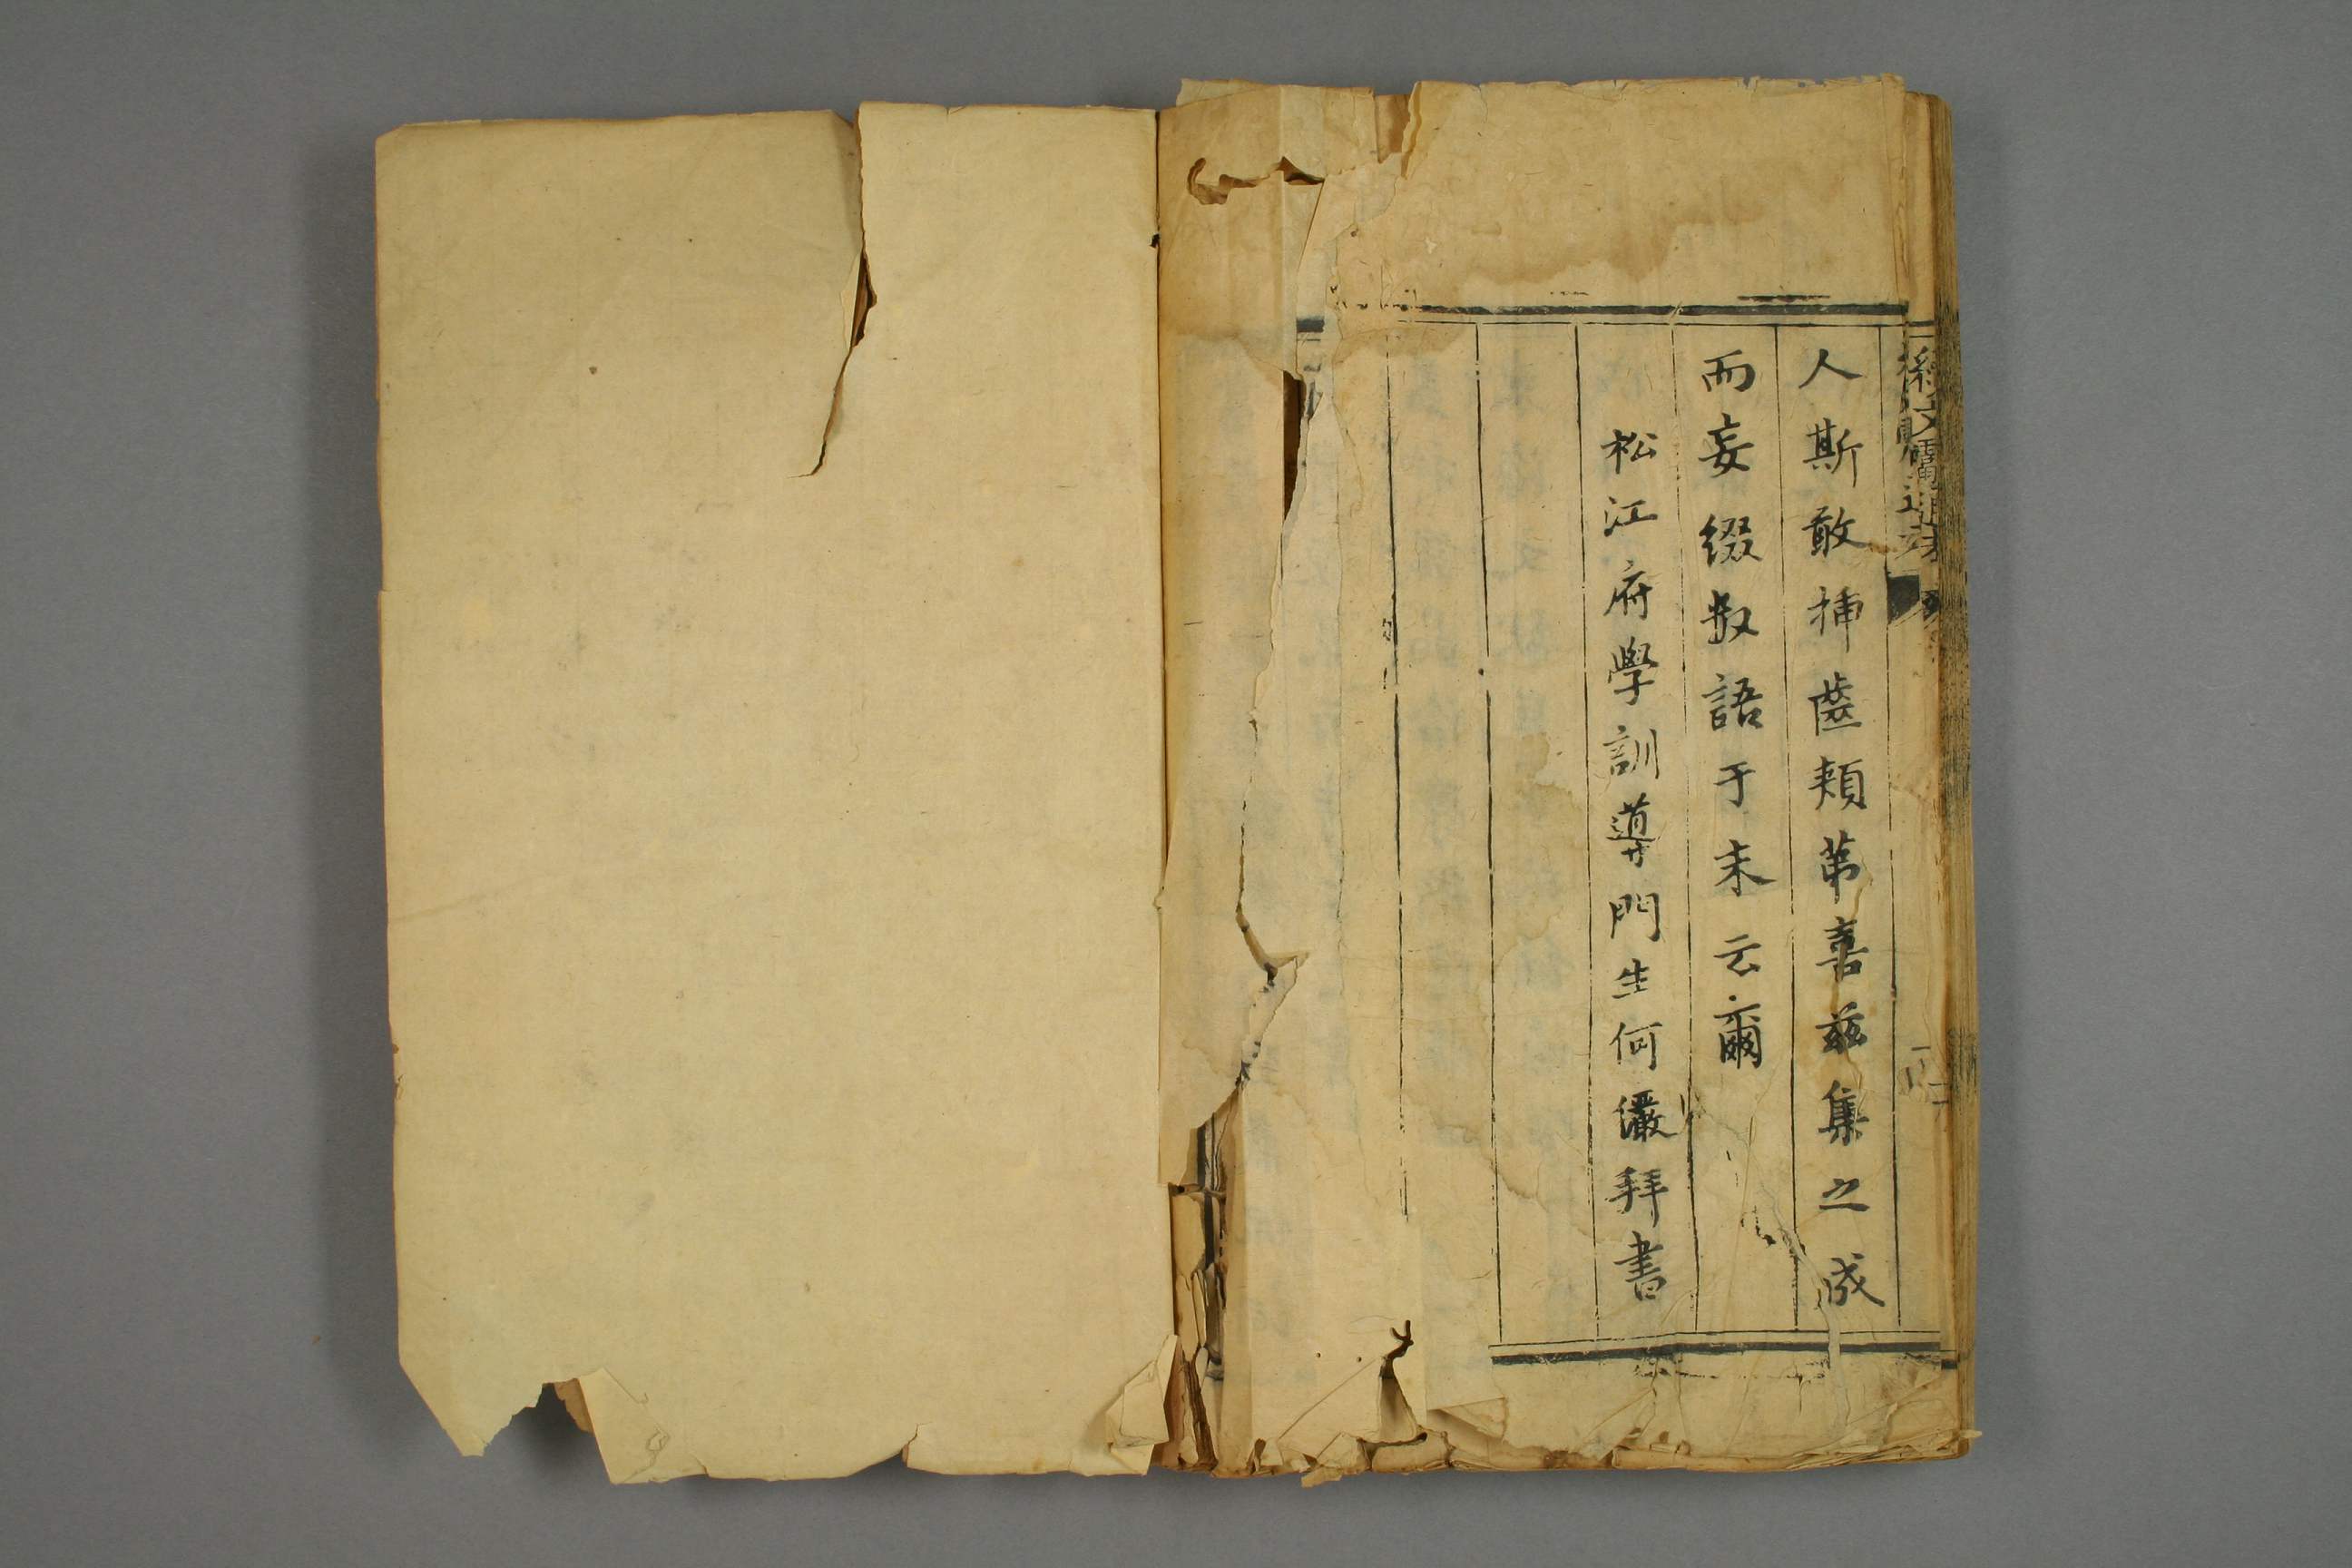 人斯敢挿齒頰第喜兹集之成
而妄綴數語于末云爾
松江府學訓導門生何儼拜書